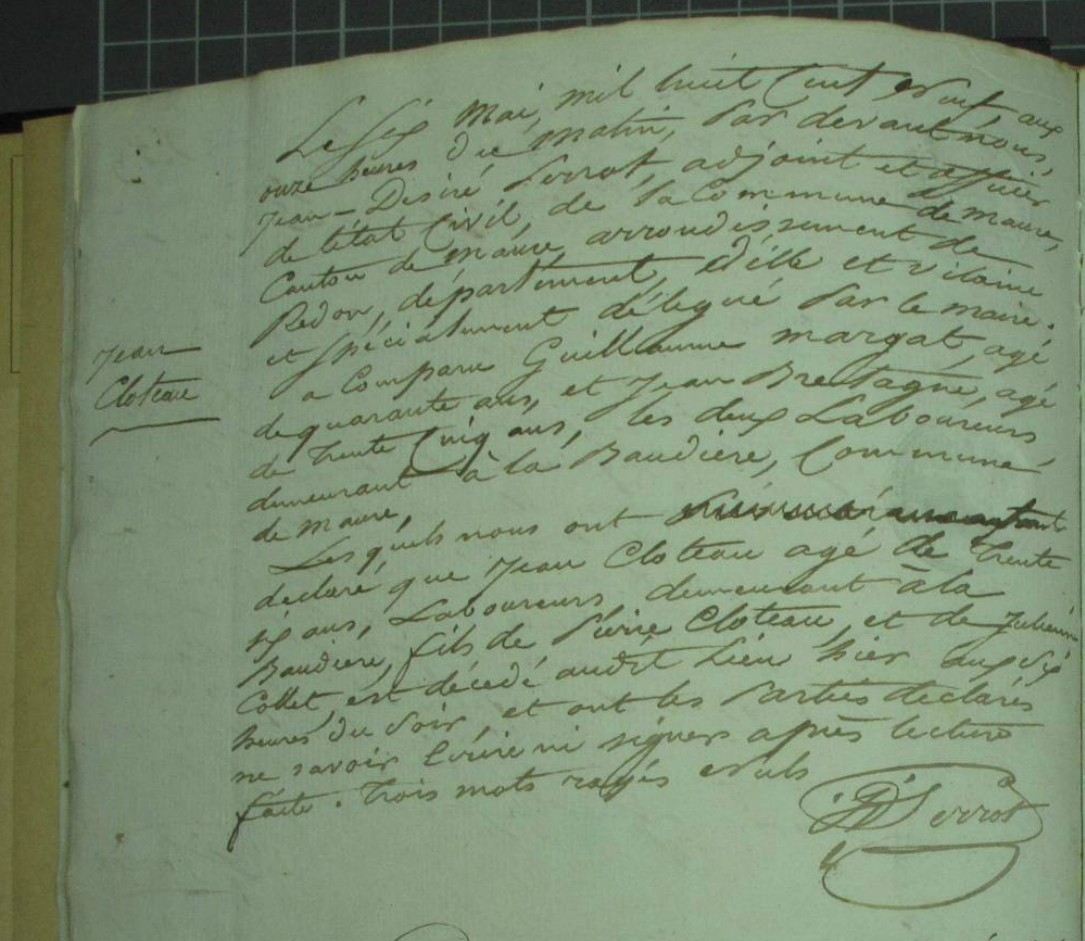 Jean
Cloteau
Le six Mai, mil huit Cent Neuf, aux
onze heures du Matin, Par devant nous,
Jean-Desiré Perrot, adjoint et officier
de l'état Civil, de la Commune de maure,
Canton de Maure arrondissement de
Redon, département d'ille et vilaine
et spécialement délegué Par le maire.
a Comparu Guillaume margat, agé
de quarante ans, et Jean Bretagne, agé
de trente Cinq ans, les deux Laboureurs
demeurant à la Baudiere, Commune
de Maure,
Lesquels nous ont
declaré que Jean Cloteau agé de trente
six ans, Laboureurs demeurant à la
Baudiere, fils de Pierre Cloteau, et de Julienne
Collet, est décedé audit Lieu hier aux six
heures du soir, et ont les Parties declarés
ne savoir Ecrire ni signer après lecture
faite. Trois mots rayés Nuls
JD Perrot